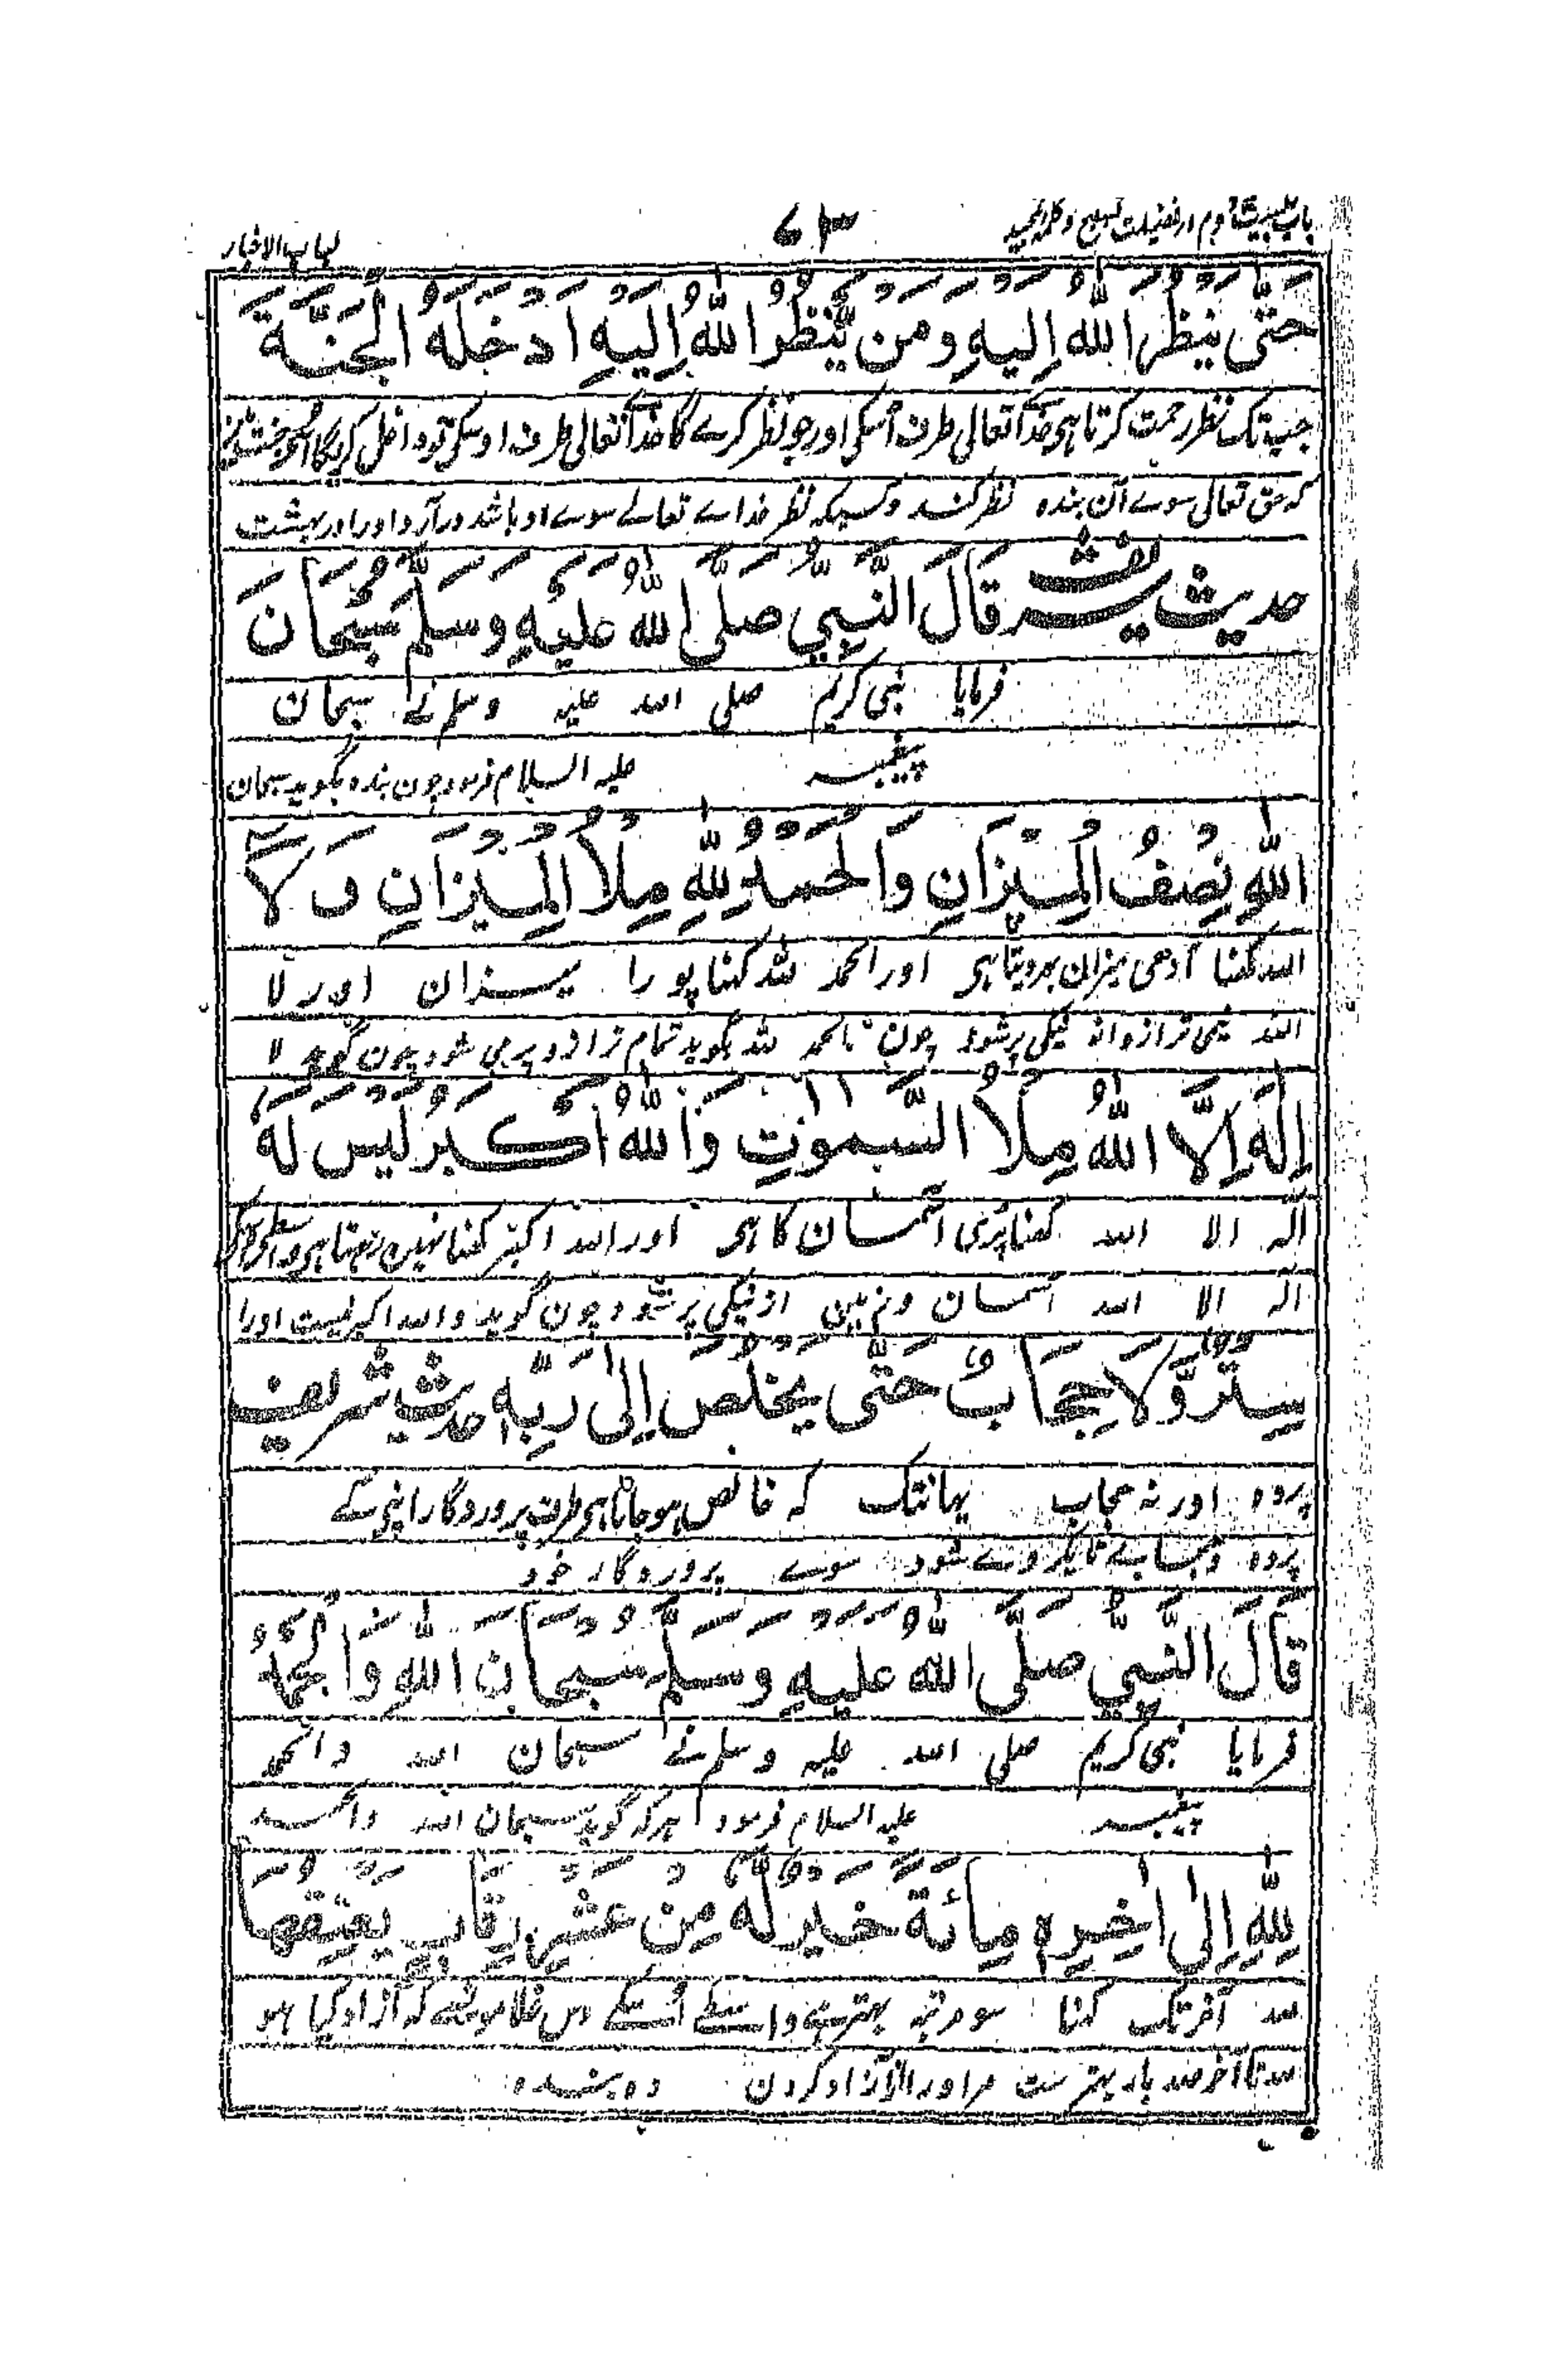 باب بیست دوم در فضیلت تسبیح و کلمہ تمجید ۶۳ لباب الاخبار
حَتّٰى يَنْظُرَ اللّٰهُ إِلَيْهِ وَمَنْ يَّنْظُرُ اللّٰهُ إِلَيْهِ اَدْخَلَهُ الْجَنَّةَ
جب تک نظر رحمت کرتا ہی خدائتعالی طرف اُسکی اور جو نظر کرے گا خدائتعالی طرف اوسکی تو داخل کریگا
کہ حق تعالی سوے آن بندہ نظر کند و کسیکہ نظر خداے تعالے سوے او باشد در آرد او را در بہشت
حدیث شریف قَالَ النَّبِيُّ صَلَّى اللّٰهُ عَلَيْهِ وَسَلَّمَ سُبْحَانَ
فرمایا نبی کریم صلی اللہ علیہ وسلم نے سبحان
پیغمبر علیہ السلام فرمود چون بندہ بگوید سبحان
اللّٰهِ نِصْفُ الْمِيْزَانِ وَالْحَمْدُ لِلّٰهِ مِلَأُ الْمِيْزَانِ وَ لَا
اللہ کہنا آدھی میزان بھر دیتا ہی اور الحمد للہ کہنا پورا میزان اور لا
اللہ نیمی ترازو از نیکی پر شود چون الحمد للہ بگوید تمام ترازو پر می شود چون گوید لا
إِلٰهَ إِلَّا اللّٰهُ مِلَأُ السَّمٰوٰتِ وَاللّٰهُ أَكْبَرُ لَيْسَ لَهٗ
الہ الا اللہ کہنا پُری آسمان کا ہی اور اللہ اکبر کہنا نہیں رہتا ہی
الہ الا اللہ آسمان و زمین از نیکی پر شود چون گوید و اللہ اکبر نیست او را
سِتْرٌ وَّلَا حِجَابٌ حَتّٰى يَخْلُصَ إِلٰى رَبِّهٖ حدیث شریف
پردہ اور نہ حجاب یہانتک کہ خالص ہو جاتا ہی طرف پروردگار اپنی کے
پردہ و حجابے تا یکروے شود سوے پروردگار خود
قَالَ النَّبِيُّ صَلَّى اللّٰهُ عَلَيْهِ وَسَلَّمَ سُبْحَانَ اللّٰهِ وَالْحَمْدُ
فرمایا نبی کریم صلی اللہ علیہ وسلم نے سبحان اللہ والحمد
پیغمبر علیہ السلام فرمود ہر کہ گوید سبحان اللہ والحمد
لِلّٰهِ إِلٰى اٰخِرِهٖ مِائَةً خَيْرٌ لَّهٗ مِنْ عَشْرِ رِقَابٍ يُعْتِقُهَا
للہ آخر تک کہنا سو مرتبہ بہتر ہے واسطے اُسکے دس غلامونسے کہ آزاد کیا ہو
للہ تا آخر صد بار بہتر ست مر او را از آزاد کردن دہ بندہ